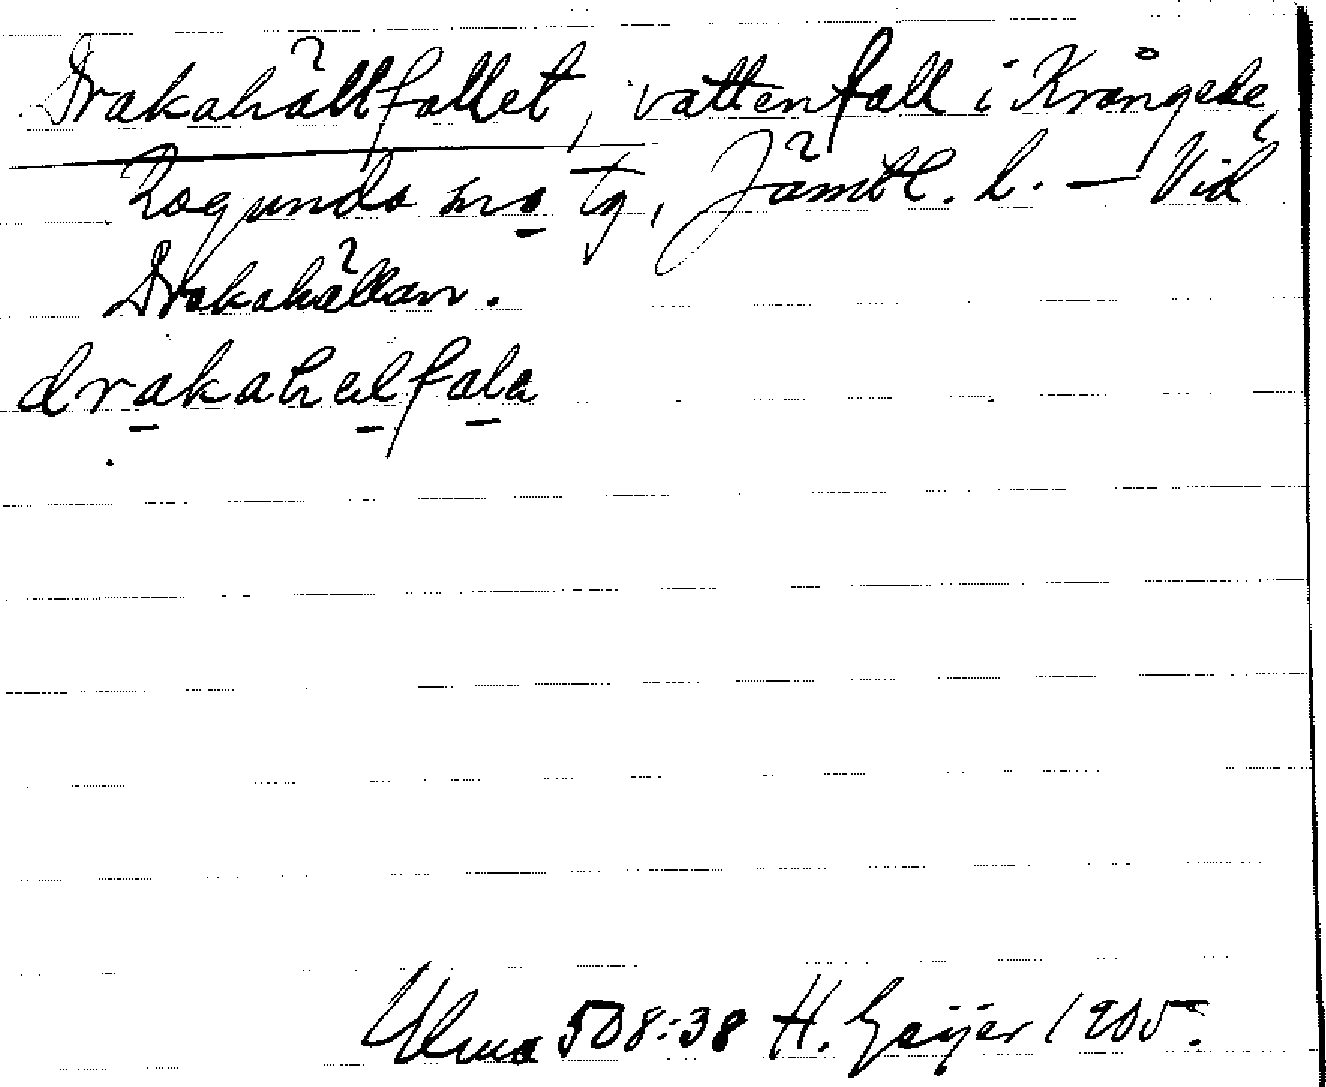 Drakahällfallet, vattenfall i Krångede,
Ragunda sn o tg, Jämtl. l. — Vid
Drakahällan.
drakahælfala
Ulma 508:38 H. Geijer 1905.